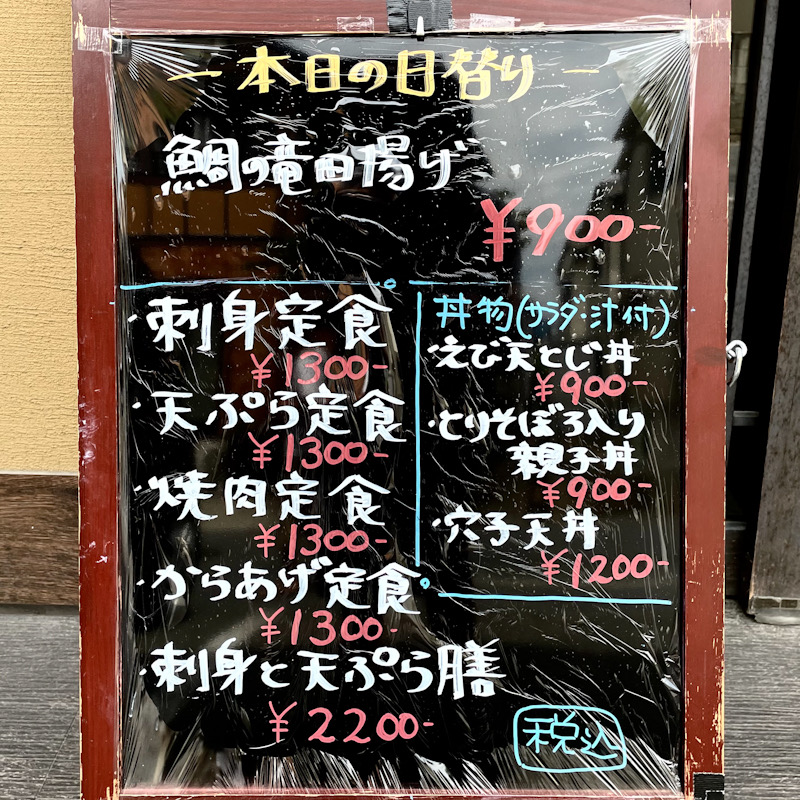 －本日の日替り－
鯛の竜田揚げ
¥900-
・刺身定食
¥1300-
・天ぷら定食
¥1300-
・焼肉定食
¥1300-
・からあげ定食
¥1300-
・刺身と天ぷら膳
¥2200-
丼物(サラダ・汁付)
・えび天とじ丼
¥900-
・とりそぼろ入り
親子丼
¥900-
・穴子天丼
¥1200-
税込